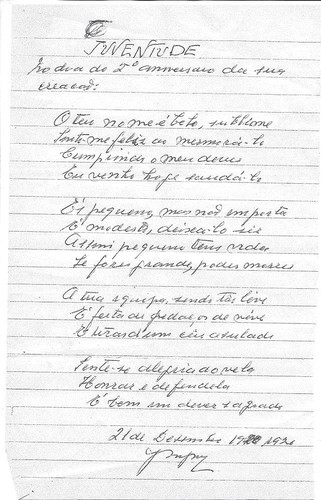 JUVENTUDE
No dia do 2º aniversario da sua
creacao:
O teu nome é belo, sublime
Sinto-me feliz ao memorá-lo
Cumprindo o meu dever
Eu venho hoje saudá-lo
És pequeno, mas não importa
É modesto, deixa-lo ser
Assim pequeno tens vida
Se fores grande, podes morrer
A tua equipa, sendo tão leve
É feita de pedaços de neve
E dum céu azulado
Sente-se alegria ao vê-la
Honrar e defendela
É bem um dever sagrado
21 de Dezembro 1920